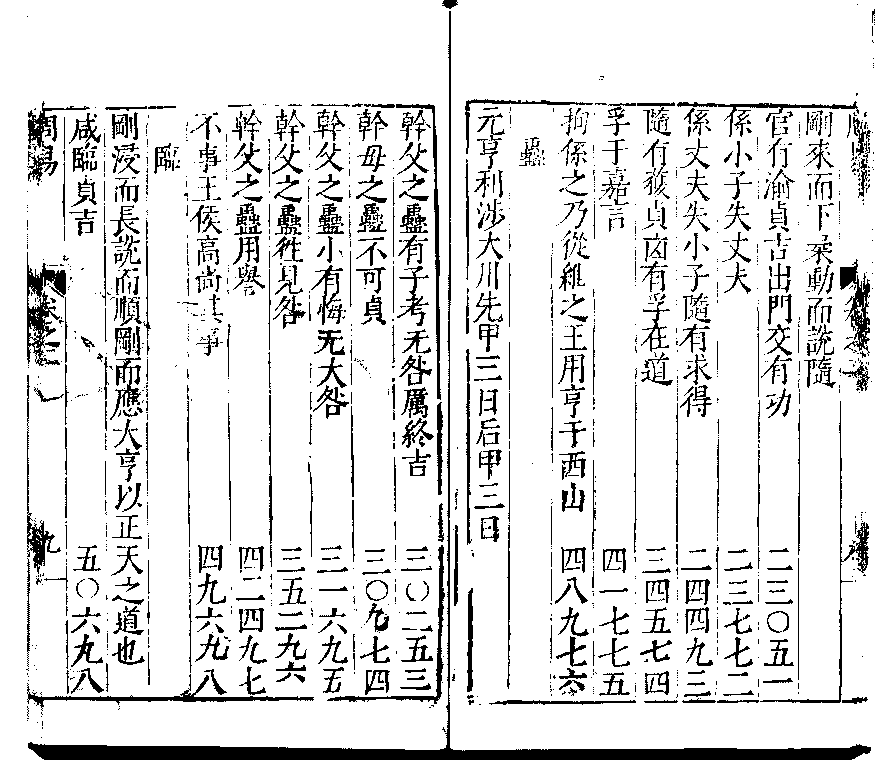 剛來而下柔動而説隨
官有渝貞吉出門交有功 二三〇五一
係小子失丈夫 二三七七二
係丈夫失小子隨有求得 二四四九三
隨有獲貞凶有孚在道 三四五七四
孚于嘉吉 四一七七五
拘係之乃從維之王用亨于西山 四八九七六
蠱
元亨利涉大川先甲三日后甲三日
幹父之蠱有子考无咎厲終吉 三〇二五三
幹母之蠱不可貞 三〇九七四
幹父之蠱小有悔无大咎 三一六九五
幹父之蠱徃見咎 三五二九六
幹父之蠱用譽 四二四九七
不事王侯高尚其事 四九六九八
臨
剛浸而長説而順剛而應大亨以正天之道也
咸臨貞吉 五〇六九八
周易 卷之二 九